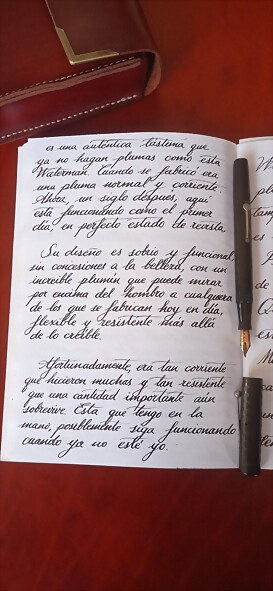 es una auténtica lástima que
ya no hagan plumas como esta
Waterman. Cuando se fabricó era
una pluma normal y corriente.
Ahora, un siglo después, aquí
está funcionando como el primer
día, en perfecto estado de revista.
Su diseño es sobrio y funcional,
sin concesiones a la belleza, con un
increíble plumín que puede mirar
por encima del hombro a cualquiera
de los que se fabrican hoy en día,
flexible y resistente más allá
de lo creíble.
Afortunadamente, era tan corriente
que hicieron muchas y tan resistente
que una cantidad importante aún
sobrevive. Esta que tengo en la
mano, posiblemente siga funcionando
cuando ya no esté yo.